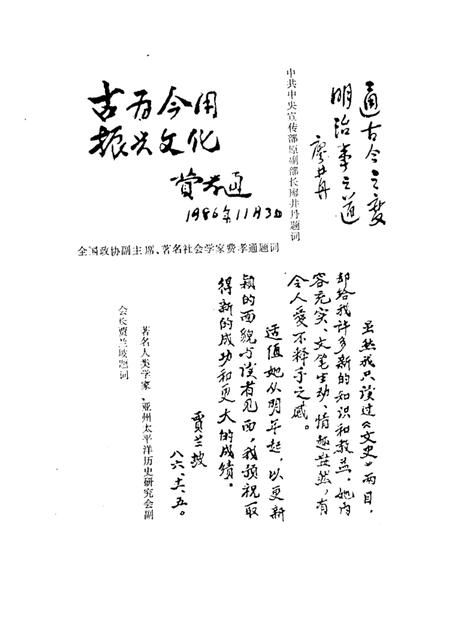 通古今之变
明治事之道
廖井丹
中共中央宣传部原副部长廖井丹题词
古为今用
振兴文化
费孝通
1986年11月3日
全国政协副主席、著名社会学家费孝通题词
虽然我只读过《文史》两目，
却给我许多新的知识和教益。她内
容充实、文笔生动、情趣盎然，有
令人爱不释手之感。
适值她从明年起，以更新
颖的面貌与读者见面，我预祝取
得新的成功和更大的成绩。
贾兰坡
八六、十二、五。
著名人类学家、亚州太平洋历史研究会副
会长贾兰坡题词